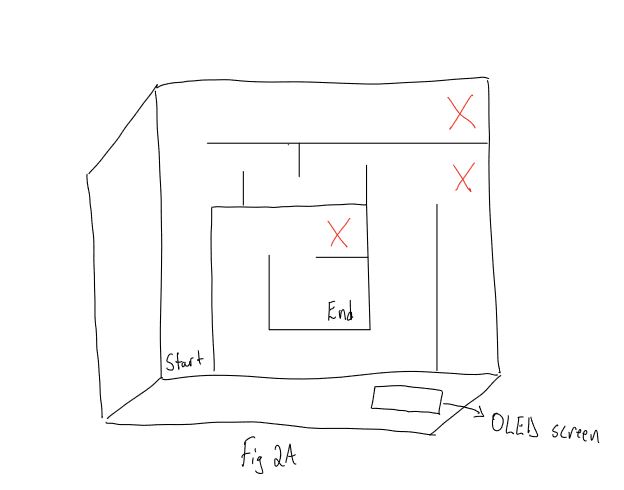 X
X
X
End
Start
OLED screen
Fig 2A